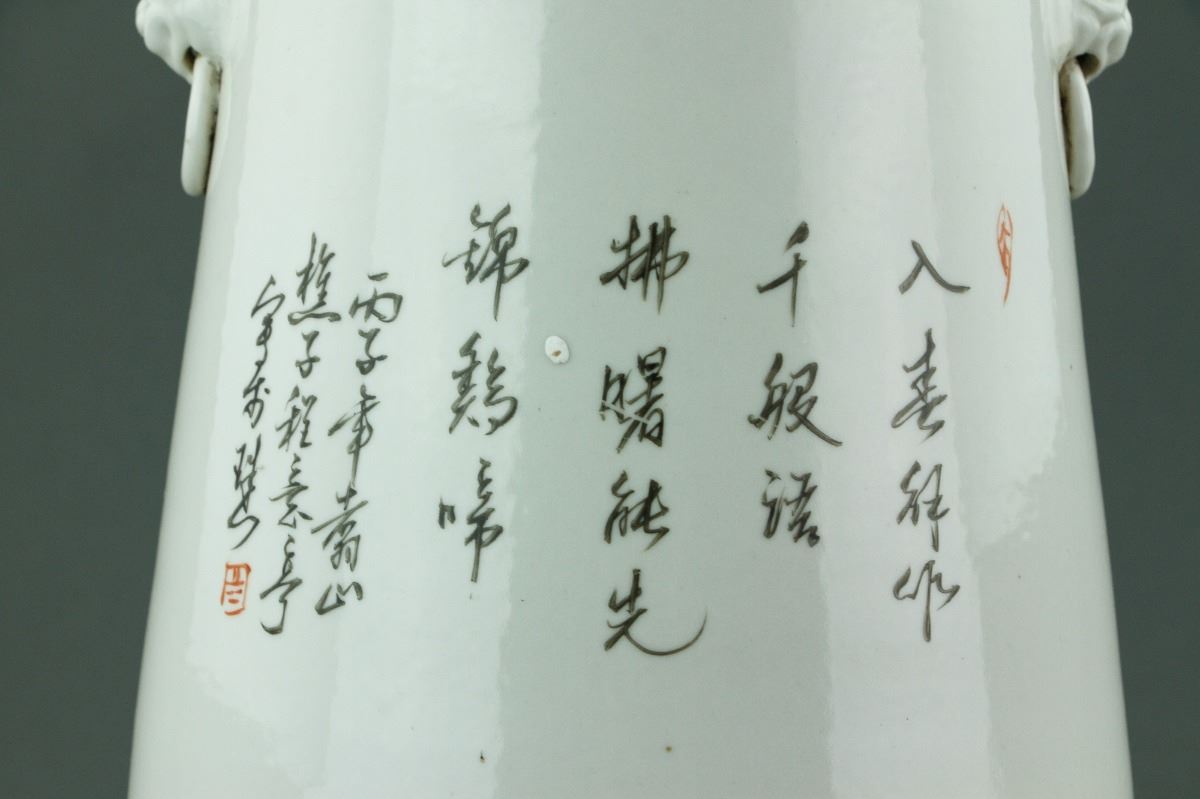 入春解作
千般語
拂曙能先
錦鷄啼
丙子年翥山
樵子程意亭
寫於珠山